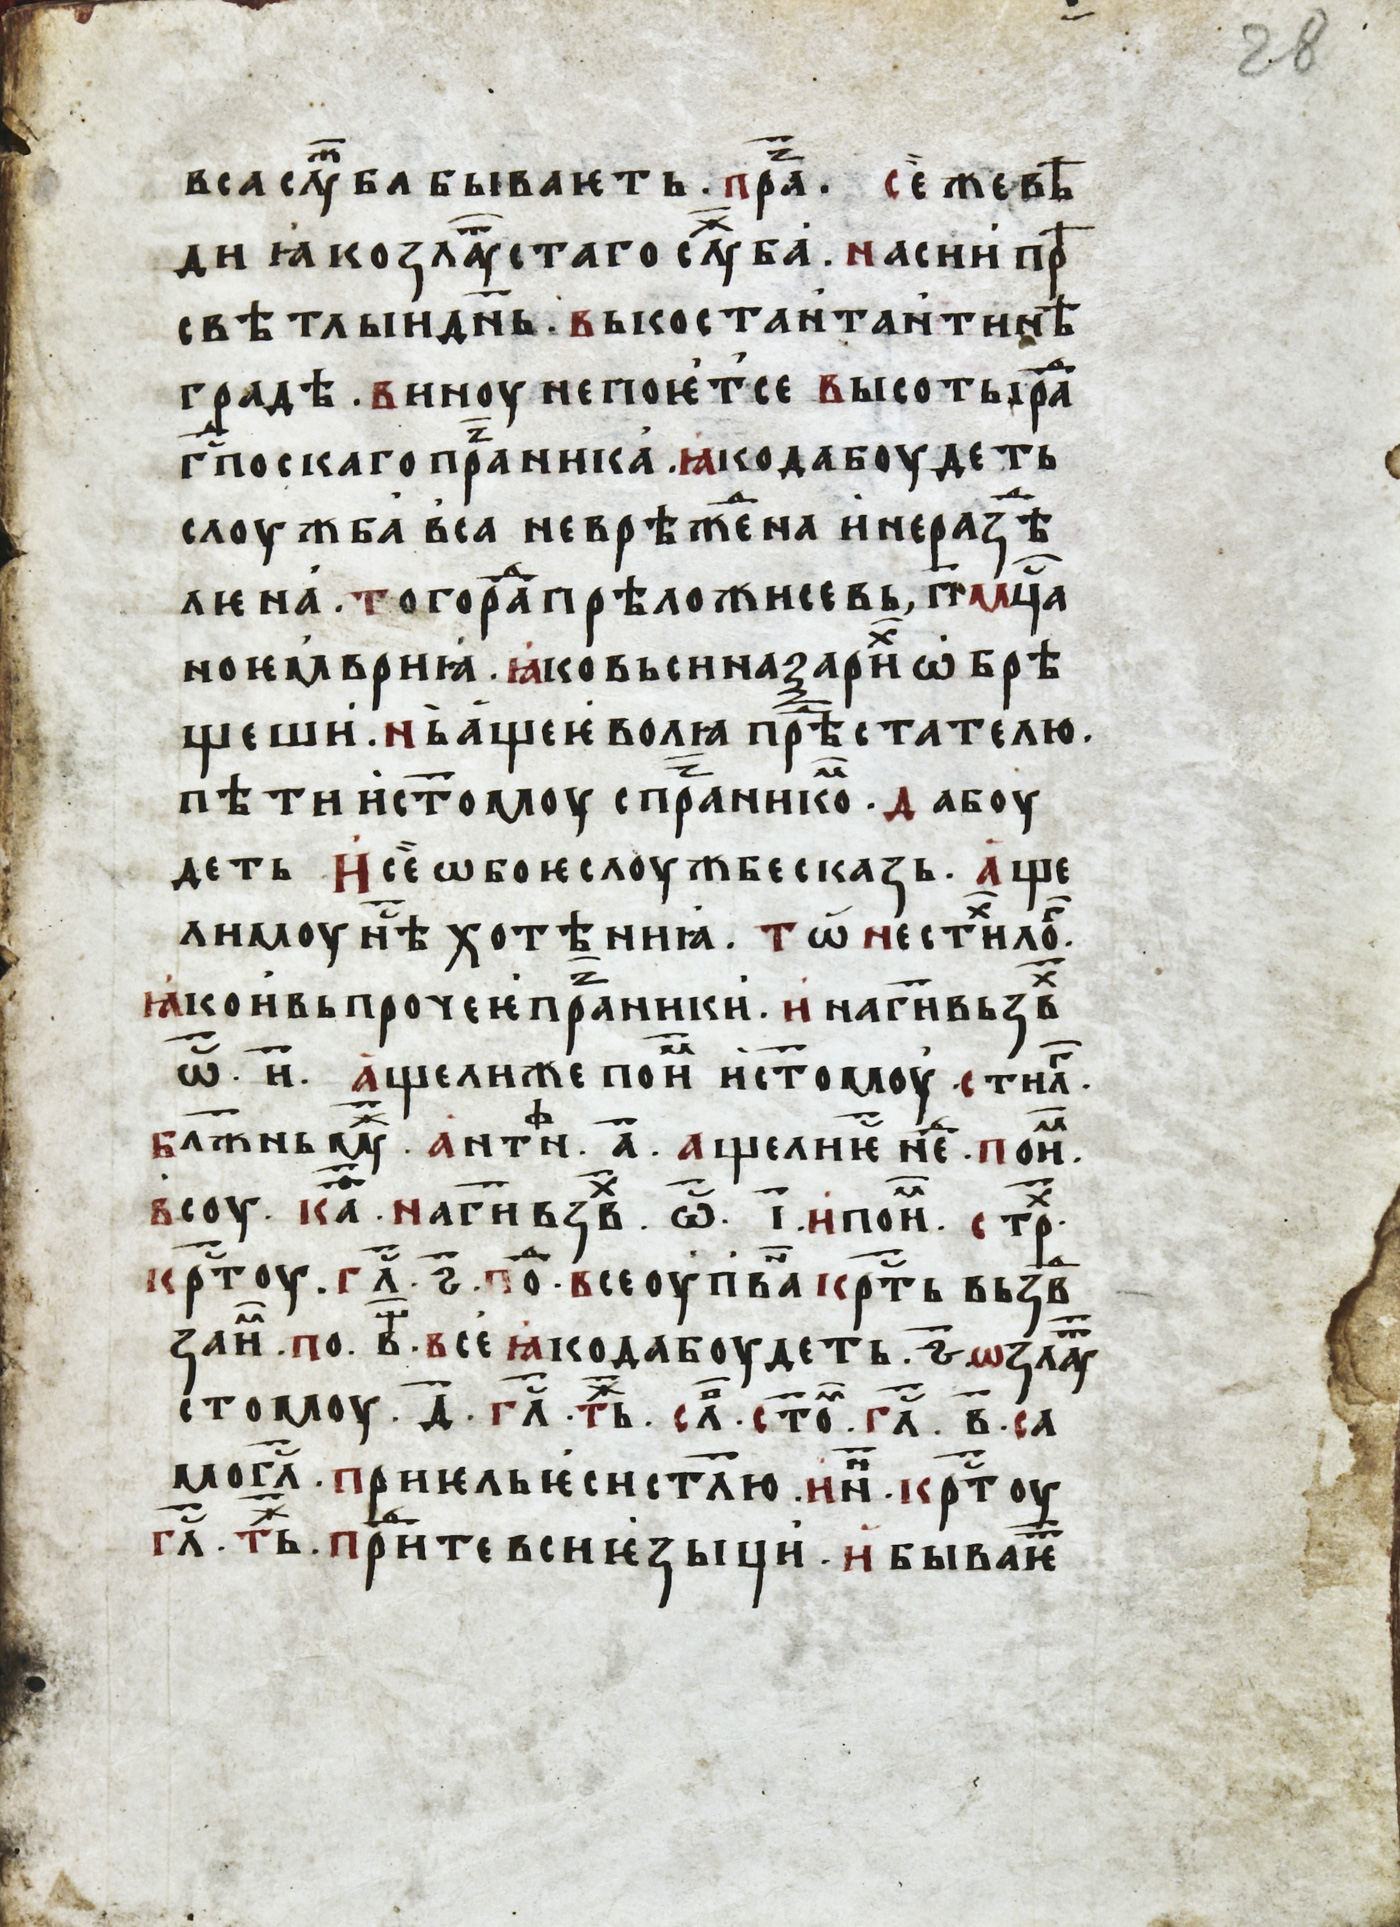 28
вса слꙋⷤба бываѥть · праⷥ · се же вѣ
ди ꙗко златꙋстаго слꙋⷤба · на сни прⷭ
свѣтлыи днь · вь костантантинѣ
градѣ · виноу не поѥтсе высоты раⷣ
гⷭпоскаго праⷥника · ꙗко да боудеть
слоужба вса неврѣжⷣена и неразⷣѣ
лѥна · того раⷣ прѣложисе вь, гі мцⷭа
ноѥмвриꙗ · ꙗко вь синазариⷯ ѡбрѣ
щеши · нь аще ѥ волꙗ прѣⷣстателю ·
пѣти и стомоу с праⷥникоⷨ · да боу
деть И се ѡбоѥ слоужбе сказь · Аще
ли моу нⷭѣ хотѣниꙗ · то ѿ несть тиⷯ лоⷢ ·
ꙗко и вь прочеѥ праⷥники · и на ги вьзвⷯ
ѿ · и · аще ли же поиⷨ и стомоу · стилⷢ ·
блжнь мꙋⷤ · антиⷴ · а · аще ли ѥⷭ неⷣ · поиⷨ ·
всоу · каⷴ · на ги взвⷯ · ѿ · і · и поиⷨ · стрⷯ ·
крⷭтоу · глⷭ · ѕ · поⷣ · все оупвⷩа крⷭть вьзвⷣ
заиⷨ · по · в҃ · все ꙗко да боудеть · ѕ · ѡ златꙋ
стомоу · д · глⷭ · тьⷤ · слаⷡ · стоⷨ · глⷭ · в · са
могⷭл · приѥль ѥси стлю · и нⷩ · крⷭтоу
глⷭ · тьⷤ · приⷣте вси ѥзыци · и бываѥⷮ